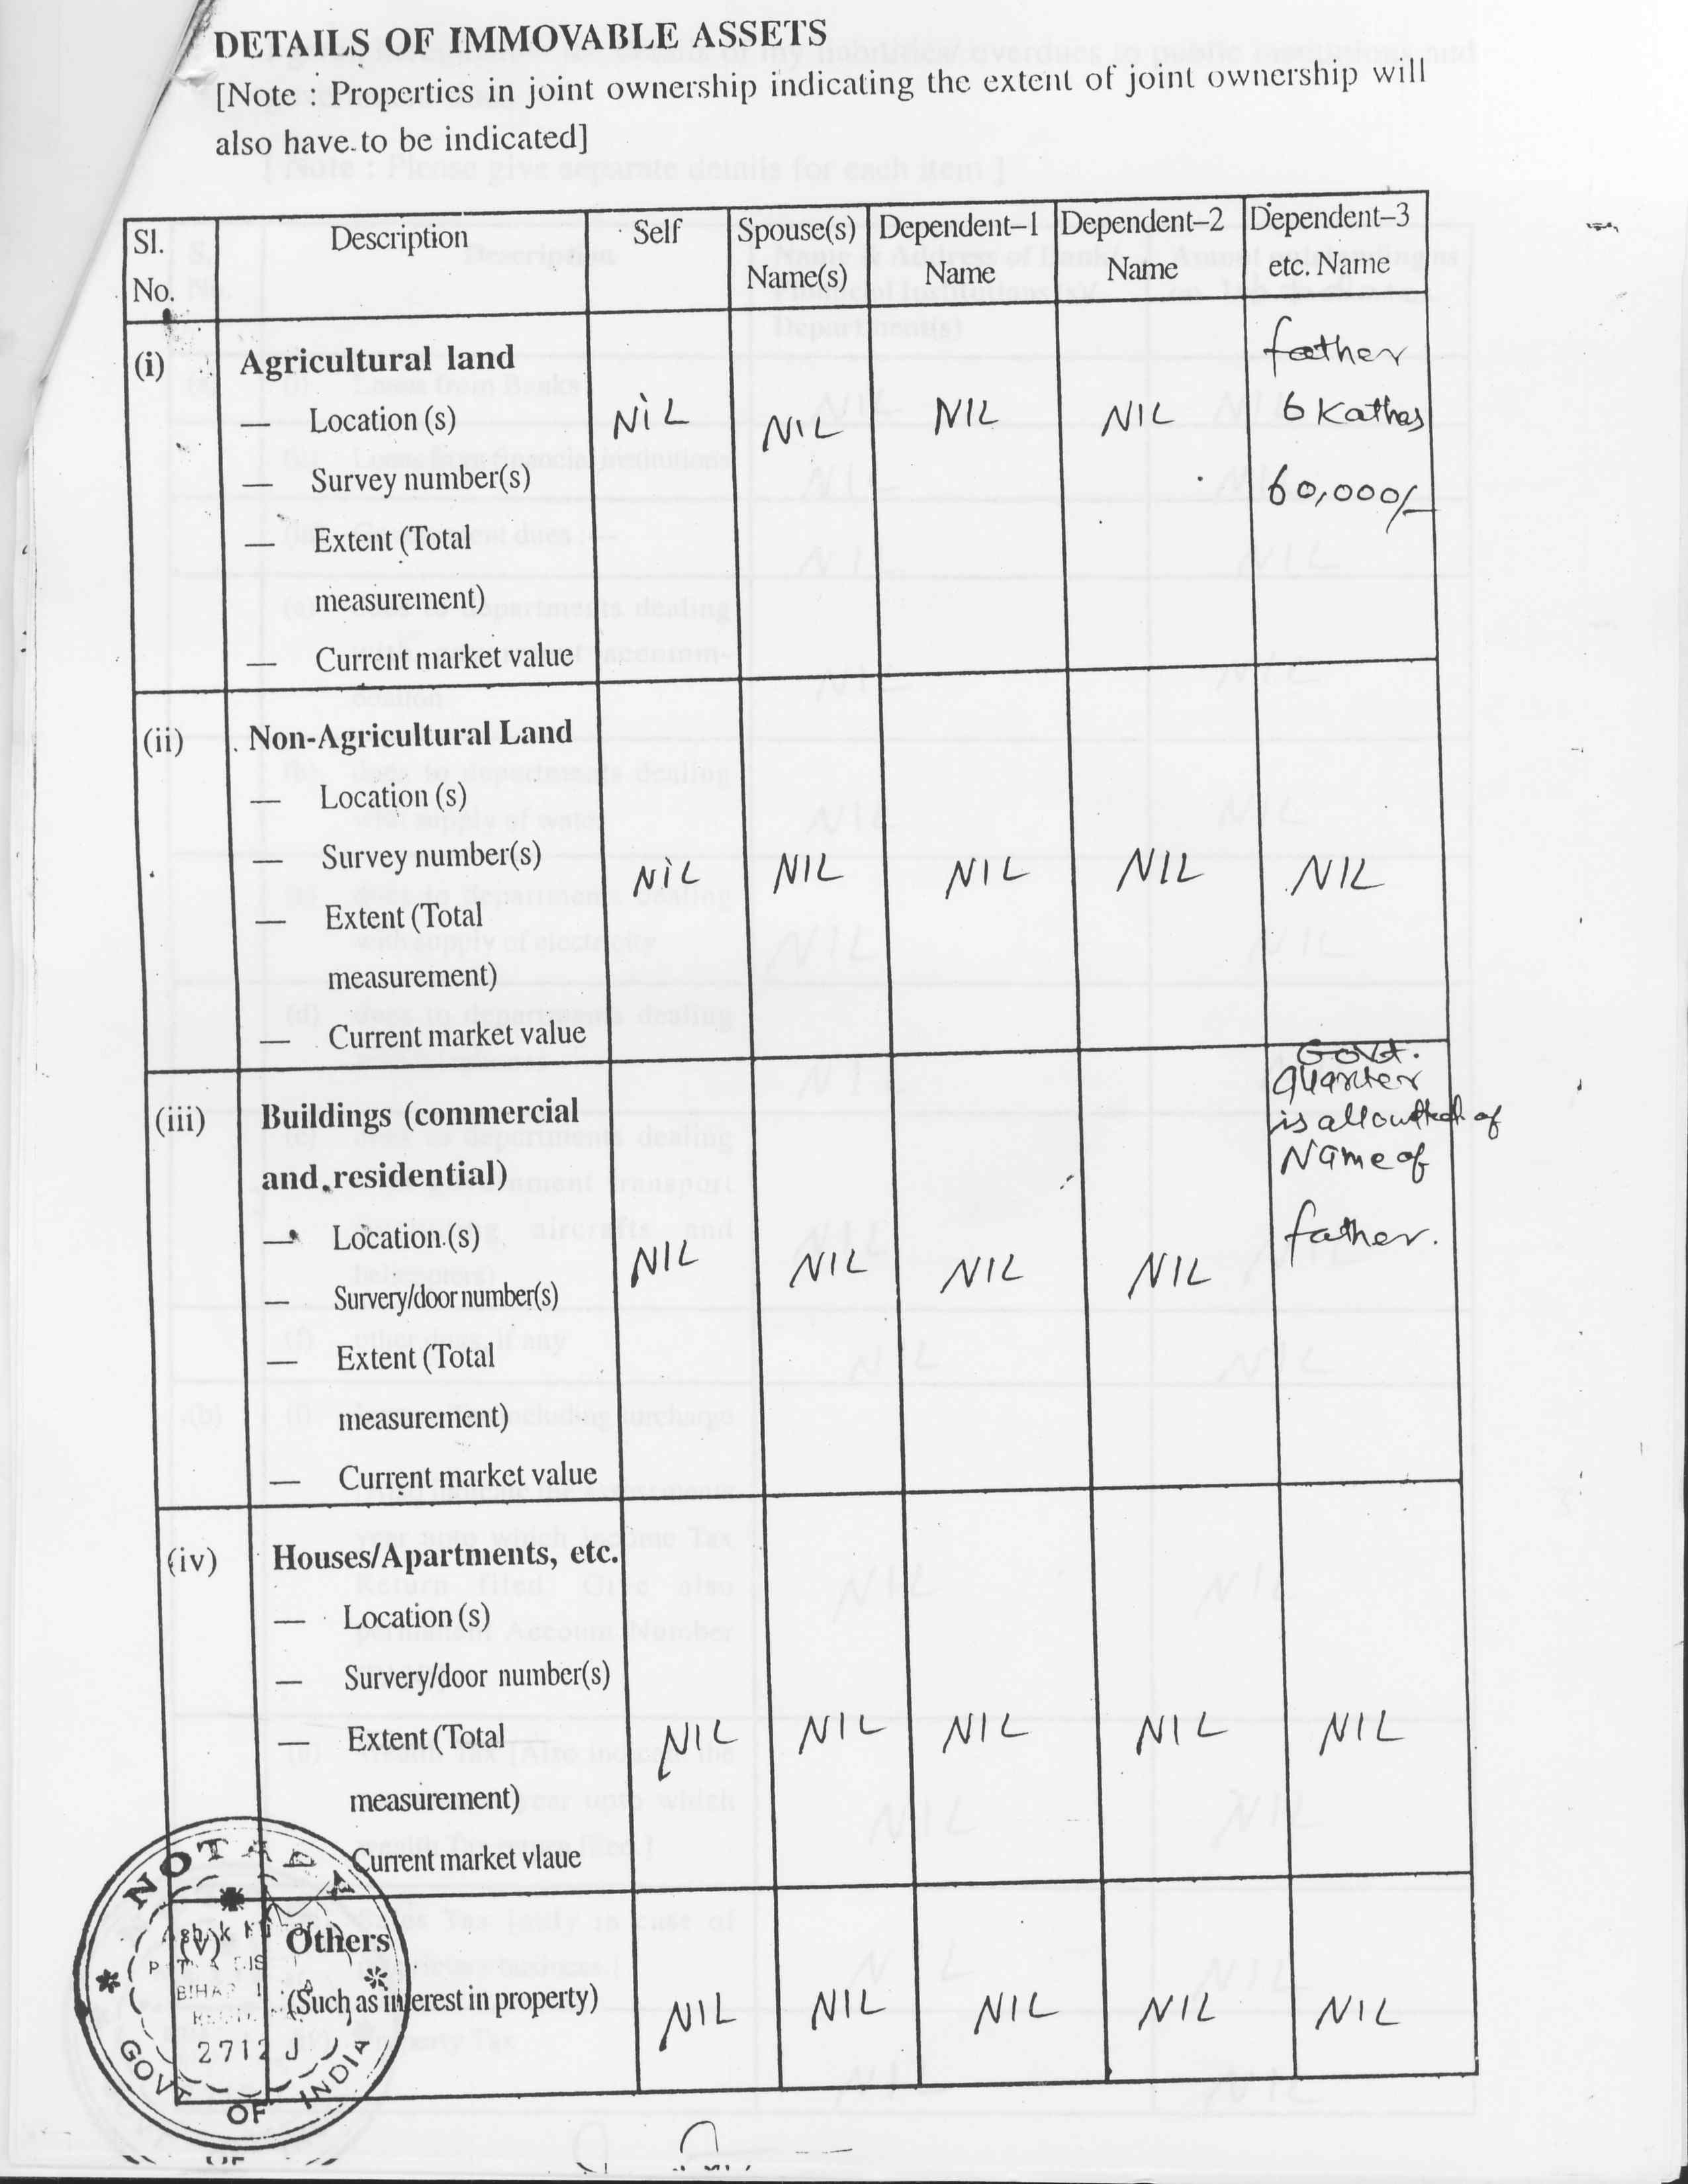 DETAILS OF IMMOVABLE ASSETS
[Note : Properties in joint ownership indicating the extent of joint ownership will
also have to be indicated]
Sl. No. Description Self Spouse(s) Name(s) Dependent–1 Name Dependent–2 Name Dependent–3 etc. Name
(i) Agricultural land father
— Location (s) NIL NIL NIL NIL 6 Kathas
— Survey number(s) 60,000/-
— Extent (Total
measurement)
— Current market value
(ii) Non-Agricultural Land
— Location (s)
— Survey number(s) NIL NIL NIL NIL NIL
— Extent (Total
measurement)
— Current market value
Govt.
quarter
(iii) Buildings (commercial is of
and residential) Name of
— Location (s) father.
NIL NIL NIL NIL
— Survery/door number(s)
— Extent (Total
measurement)
— Current market value
(iv) Houses/Apartments, etc.
— Location (s)
— Survery/door number(s)
— Extent (Total NIL NIL NIL NIL NIL
measurement)
Current market vlaue
(v) Others
(Such as interest in property) NIL NIL NIL NIL NIL
NOTARY
BIHAR
2712 J
GOVT OF INDIA